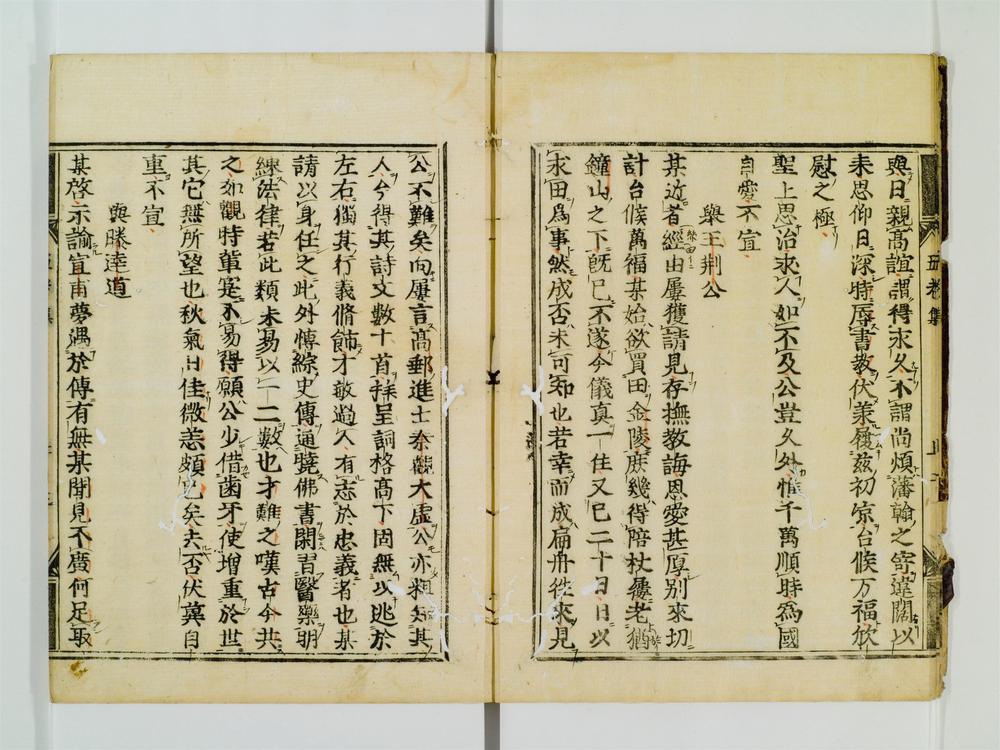 輿日親高誼謂得求久不謂尚煩藩翰之寄違闊以
未思仰日深時辱書教伏羕履茲初涼台候万福欣
慰之極
聖上思治求人如不及公豈久外惟千萬順時為國
自愛不宜
與王荆公
某近者經由屢獲請見存撫教誨恩愛甚厚別來切
計台候萬福某始欲買田金陵庶幾得陪杖屨老猶
鐘山之下既已不遂今儀真一住又巳二十日日以
求田為事然成否未可知也若幸而成扁舟徃來見
公不難矣向屢言高郵進士秦觀大虛公亦粗知其
人今得其詩文數十首拜呈詞格高下固無以逃於
左右獨其行義脩飾才敏過人有志於忠義者也某
請以身任之此外愽綜史傳通曉佛書閑習醫藥明
練法律若此類未易以一二數也才難之嘆古今共
之如觀特軰寔不易得願公少借齒牙使增重於世
其它無所望也秋氣日佳微恙頗已矣夫否伏冀自
重不宜
與滕達道
某啓示諭宜甫夢遇於傳有無某聞見不廣何足取
五卷集